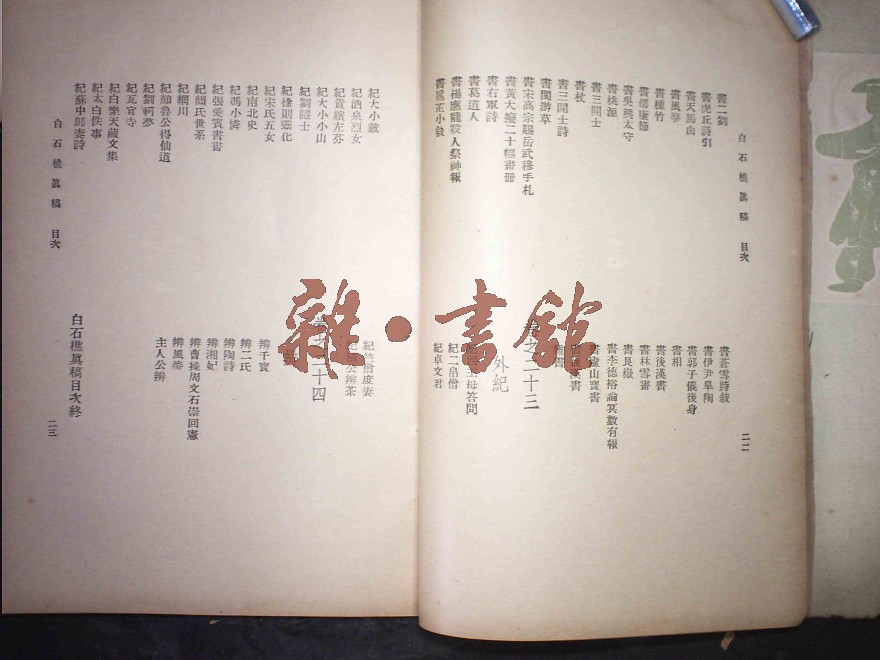 白石樵真稿 目次
二二
書二劉
書虎丘詩引
書天馬山
書風夢
書種竹
書邵康節
書吳興太守
書桃源
書三開士
書杖
書三開士詩
書閩游草
書宋高宗賜岳武穆手札
書黃大癡二十幅畫册
書右軍詩
書葛道人
書楊應龍殺人祭神報
書蒼雪詩敍
書伊尹皐陶
書郭子儀後身
書相
書後漢書
書林雪畫
書艮嶽
書李德裕論冥數有報
書廬山寶書
卷之二十三
外紀
紀二皂僧
紀卓文君
紀大小鼓
紀酒泉烈女
紀貴嬪左芬
紀大小小山
紀劉隱士
紀徐則靈化
紀宋氏五女
紀南北史
紀馮小憐
紀張愛賓書畫
紀顏氏世系
紀輞川
紀顏魯公得仙道
紀劉柯夢
紀瓦官寺
紀白樂天藏文集
紀太白佚事
紀蘇中郎妻詩
卷之二十四
辨干寶
辨二氏
辨陶詩
辨湘妃
辨曹操周文石崇回憲
辨風箏
主人公辨
白石樵眞稿目次終
白石樵眞稿 目次
二三
雜·書館